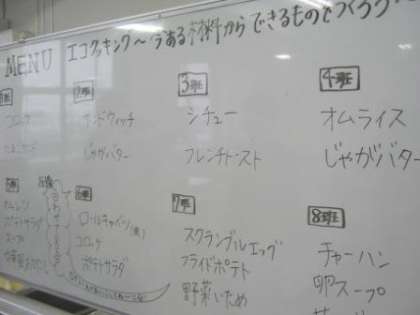 MENU エコクッキング〜今ある材料からできるものでつくろう〜
1班
コロッケ
2班
サンドウィッチ
じゃがバター
3班
シチュー
フレンチトースト
4班
オムライス
じゃがバター
5班
オムレツ
ポテトサラダ
スープ
6班
ロールキャベツ(風)
コロッケ
ポテトサラダ
7班
スクランブルエッグ
フライドポテト
野菜いため
8班
チャーハン
卵スープ